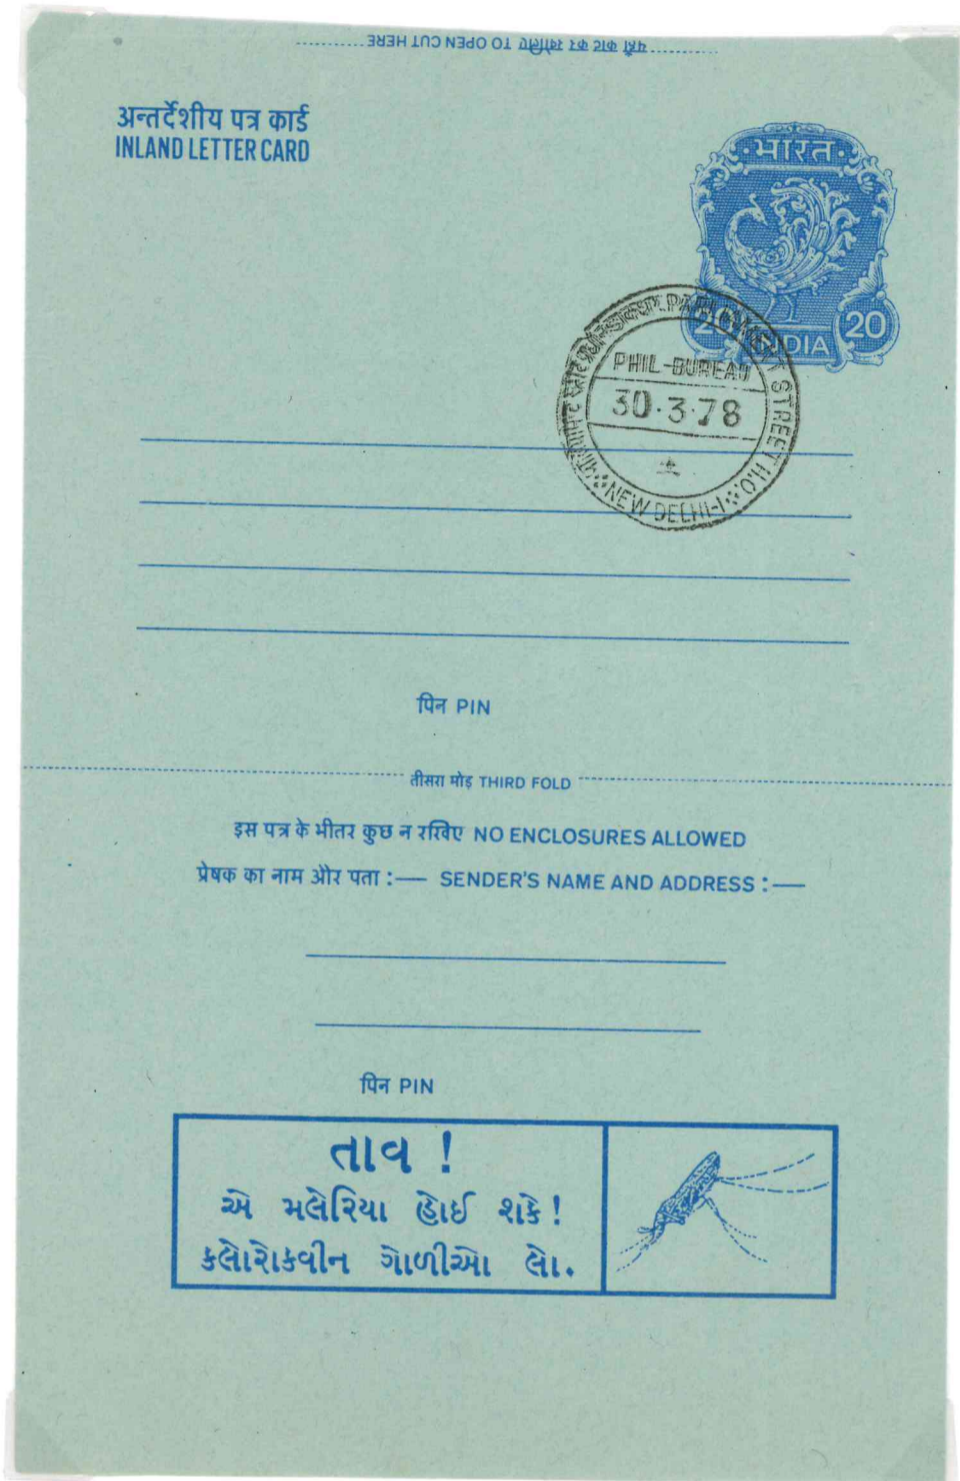 यहाँ काट कर खोलिए TO OPEN CUT HERE
अन्तर्देशीय पत्र कार्ड
INLAND LETTER CARD
भारत
20 INDIA 20
पार्लियामेन्ट स्ट्रीट प्रधान डाकघर PARLIAMENT STREET H.O.
PHIL-BUREAU
30.3.78
NEW DELHI-1
पिन PIN
तीसरा मोड़ THIRD FOLD
इस पत्र के भीतर कुछ न रखिए NO ENCLOSURES ALLOWED
प्रेषक का नाम और पता :— SENDER'S NAME AND ADDRESS :—
पिन PIN
તાવ !
એ મલેરિયા હોઈ શકે!
કલોરોકવીન ગોળીઓ લો.